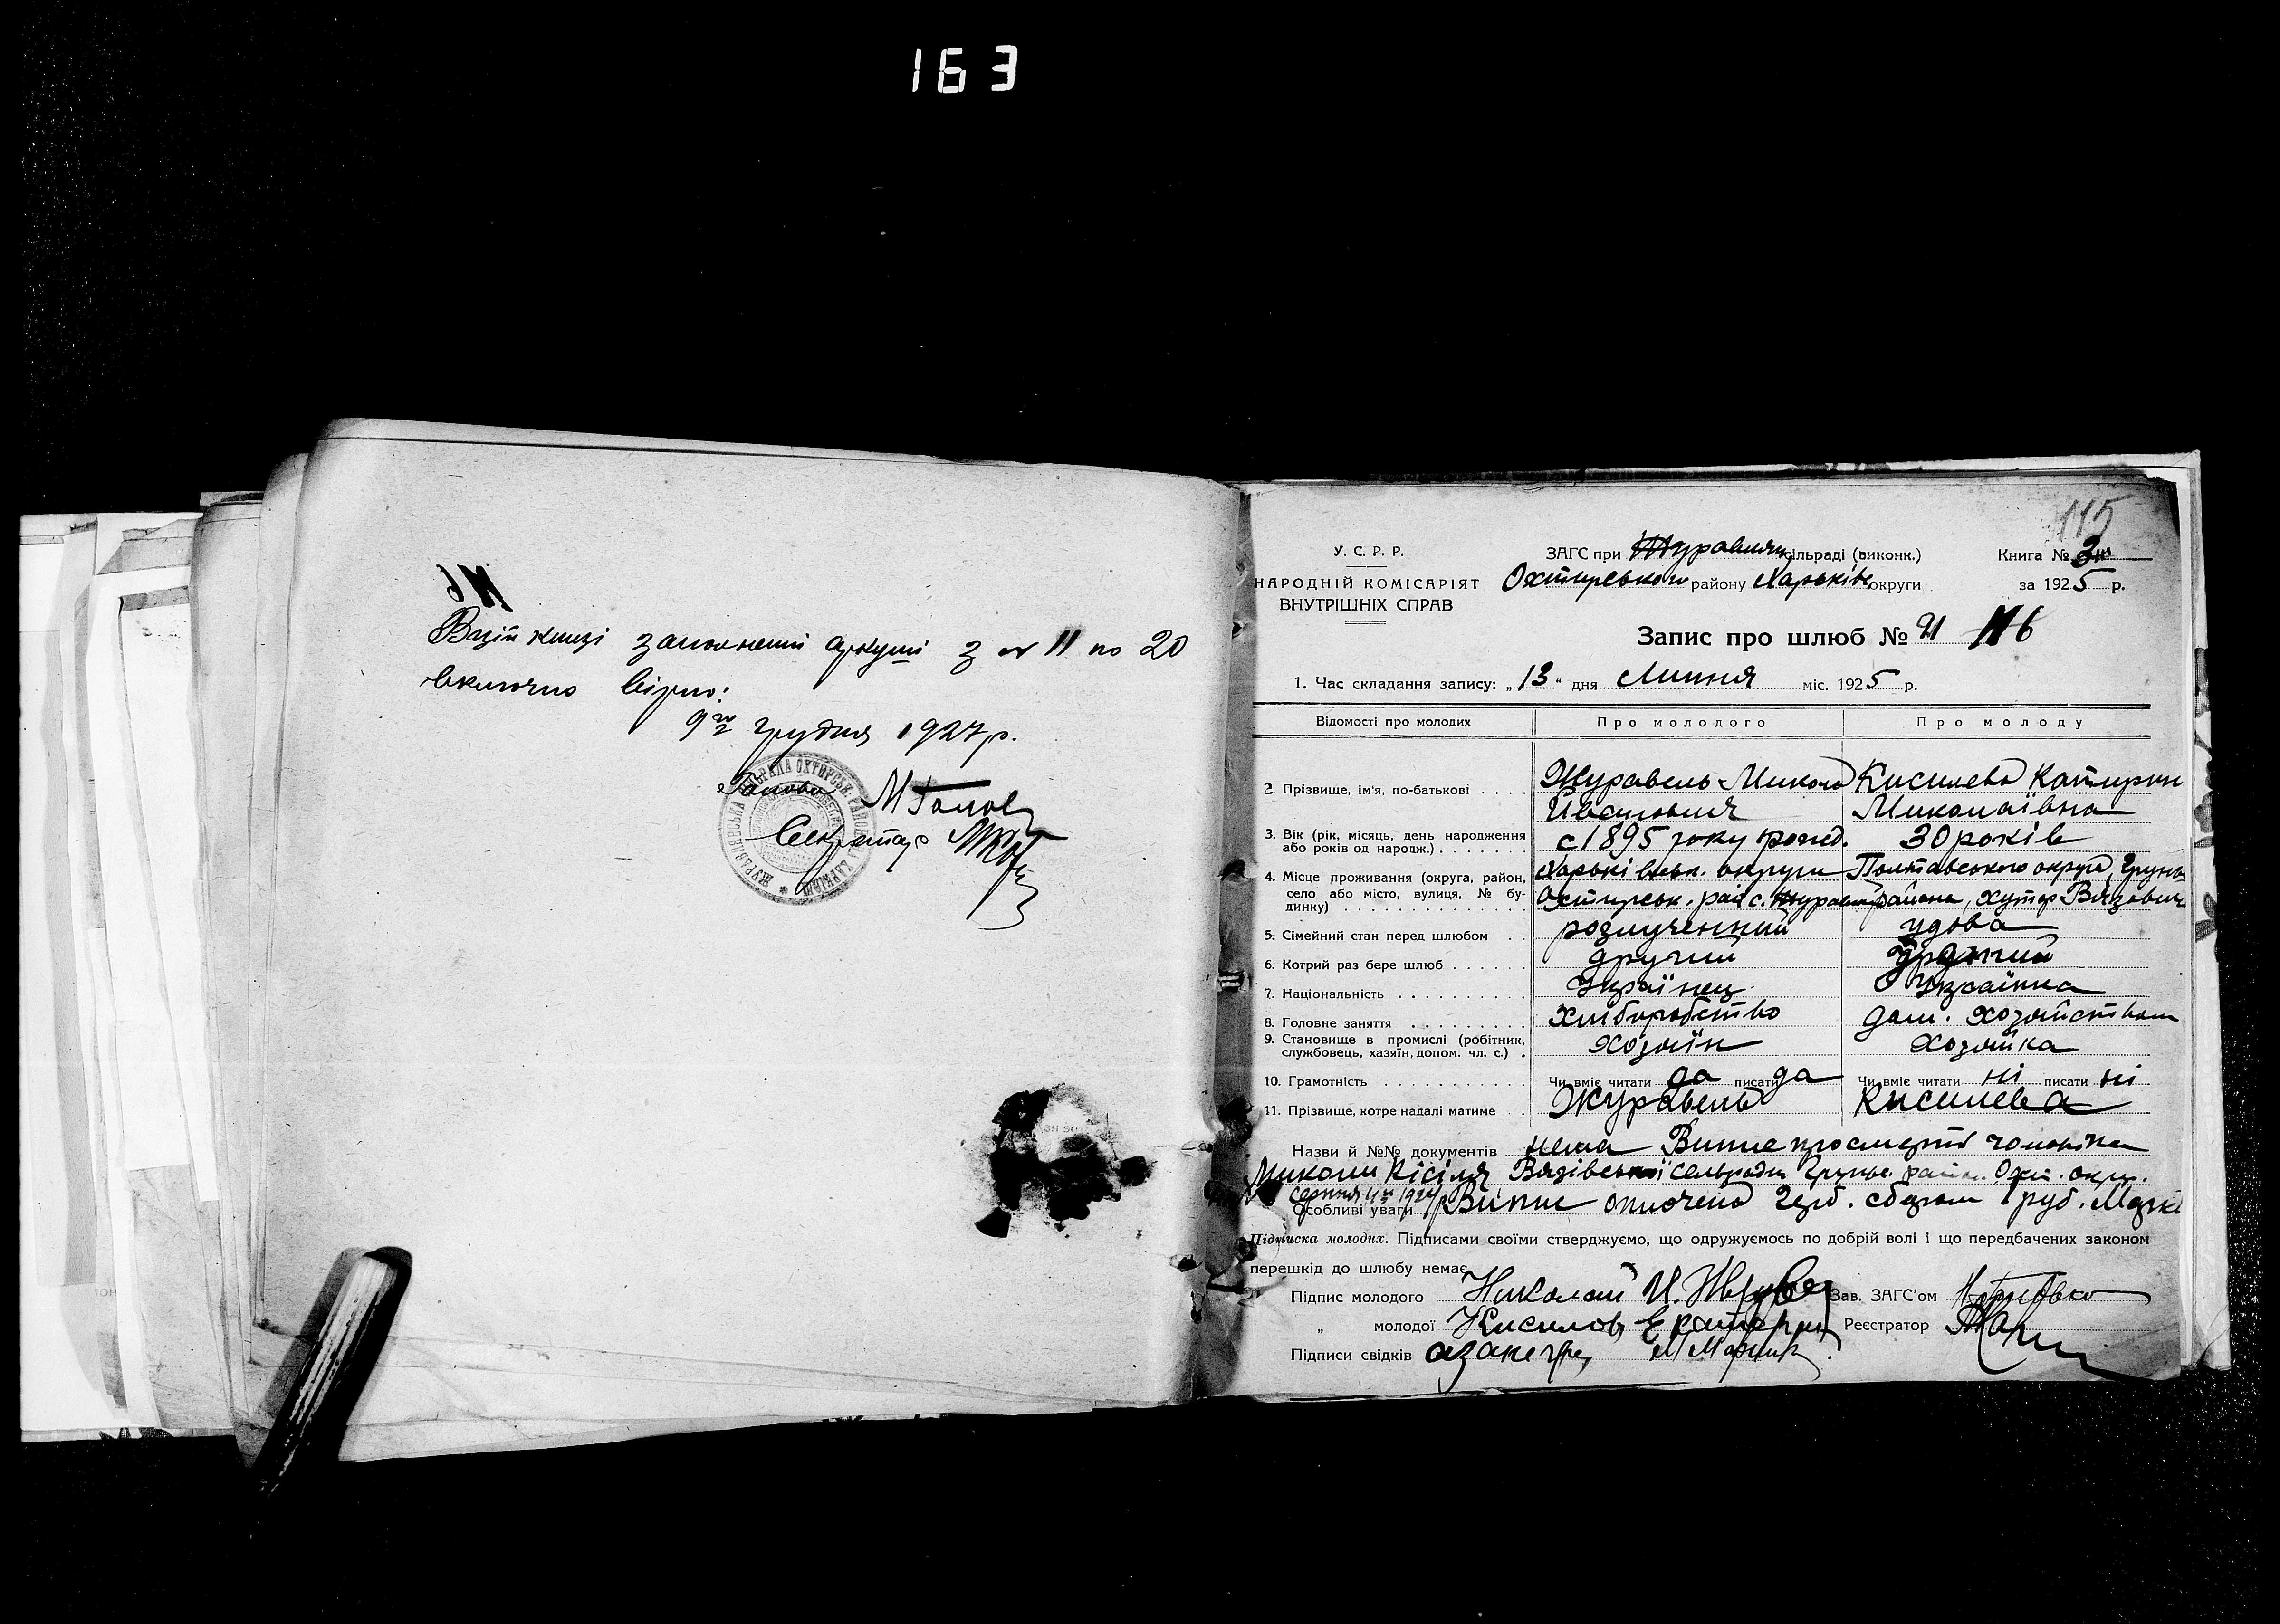 163
В цій книзі заповнені аркуші з № 11 по 20
включно вірно:
9го грудня 1927 р.
Голова МГолов
Секретар
115
У. С. Р. Р.
НАРОДНІЙ КОМІСАРІЯТ
ВНУТРІШНІХ СПРАВ
ЗАГС при Журавлян сільраді (виконк.)
Охтирського району Харьків округи
Книга № 3
за 1925 р.
Запис про шлюб № 21 116
1. Час складання запису: „13“ дня Липня міс. 1925 р.
Відомості про молодих Про молодого Про молоду
2. Прізвище, ім'я, по-батькові Журавель Микола Кисилева Катирин
Івасиловия Миколаївна
3. Вік (рік, місяць, день народження с 1895 року рожд. 30 років
або років од народж.)
4. Місце проживання (округа, район, Харьківськ. округи Полтавського округа, Грунь
село або місто, вулиця, № бу- Охтирськ. рай с. Журавл района, хутор Вязовий
динку)
5. Сімейний стан перед шлюбом розлученний удова
6. Котрий раз бере шлюб другий другий
7. Національність Українец Українка
8. Головне заняття хліборобство дом. хозяйством
9. Становище в промислі (робітник, хозяїн хозяйка
службовець, хазяїн, допом. чл. с.)
10. Грамотність Чи вміє читати да писати да Чи вміє читати ні писати ні
11. Прізвище, котре надалі матиме Журавель Кисилева
Назви й №№ документів нема Випис про смерть чоловіка
Миколи Кісіля Вязівської сельради Груньс. район. Охт. окр.
серпня 11 1924
Особливі уваги Випис оплочено герб. сбором 1 руб. Марки
Підписка молодих. Підписами своїми стверджуємо, що одружуємось по добрій волі і що передбачених законом
перешкід до шлюбу немає
Підпис молодого Николай И. Журавел Зав. ЗАГС'ом
„ молодої Кисилов Екатерин Реєстратор
Підписи свідків